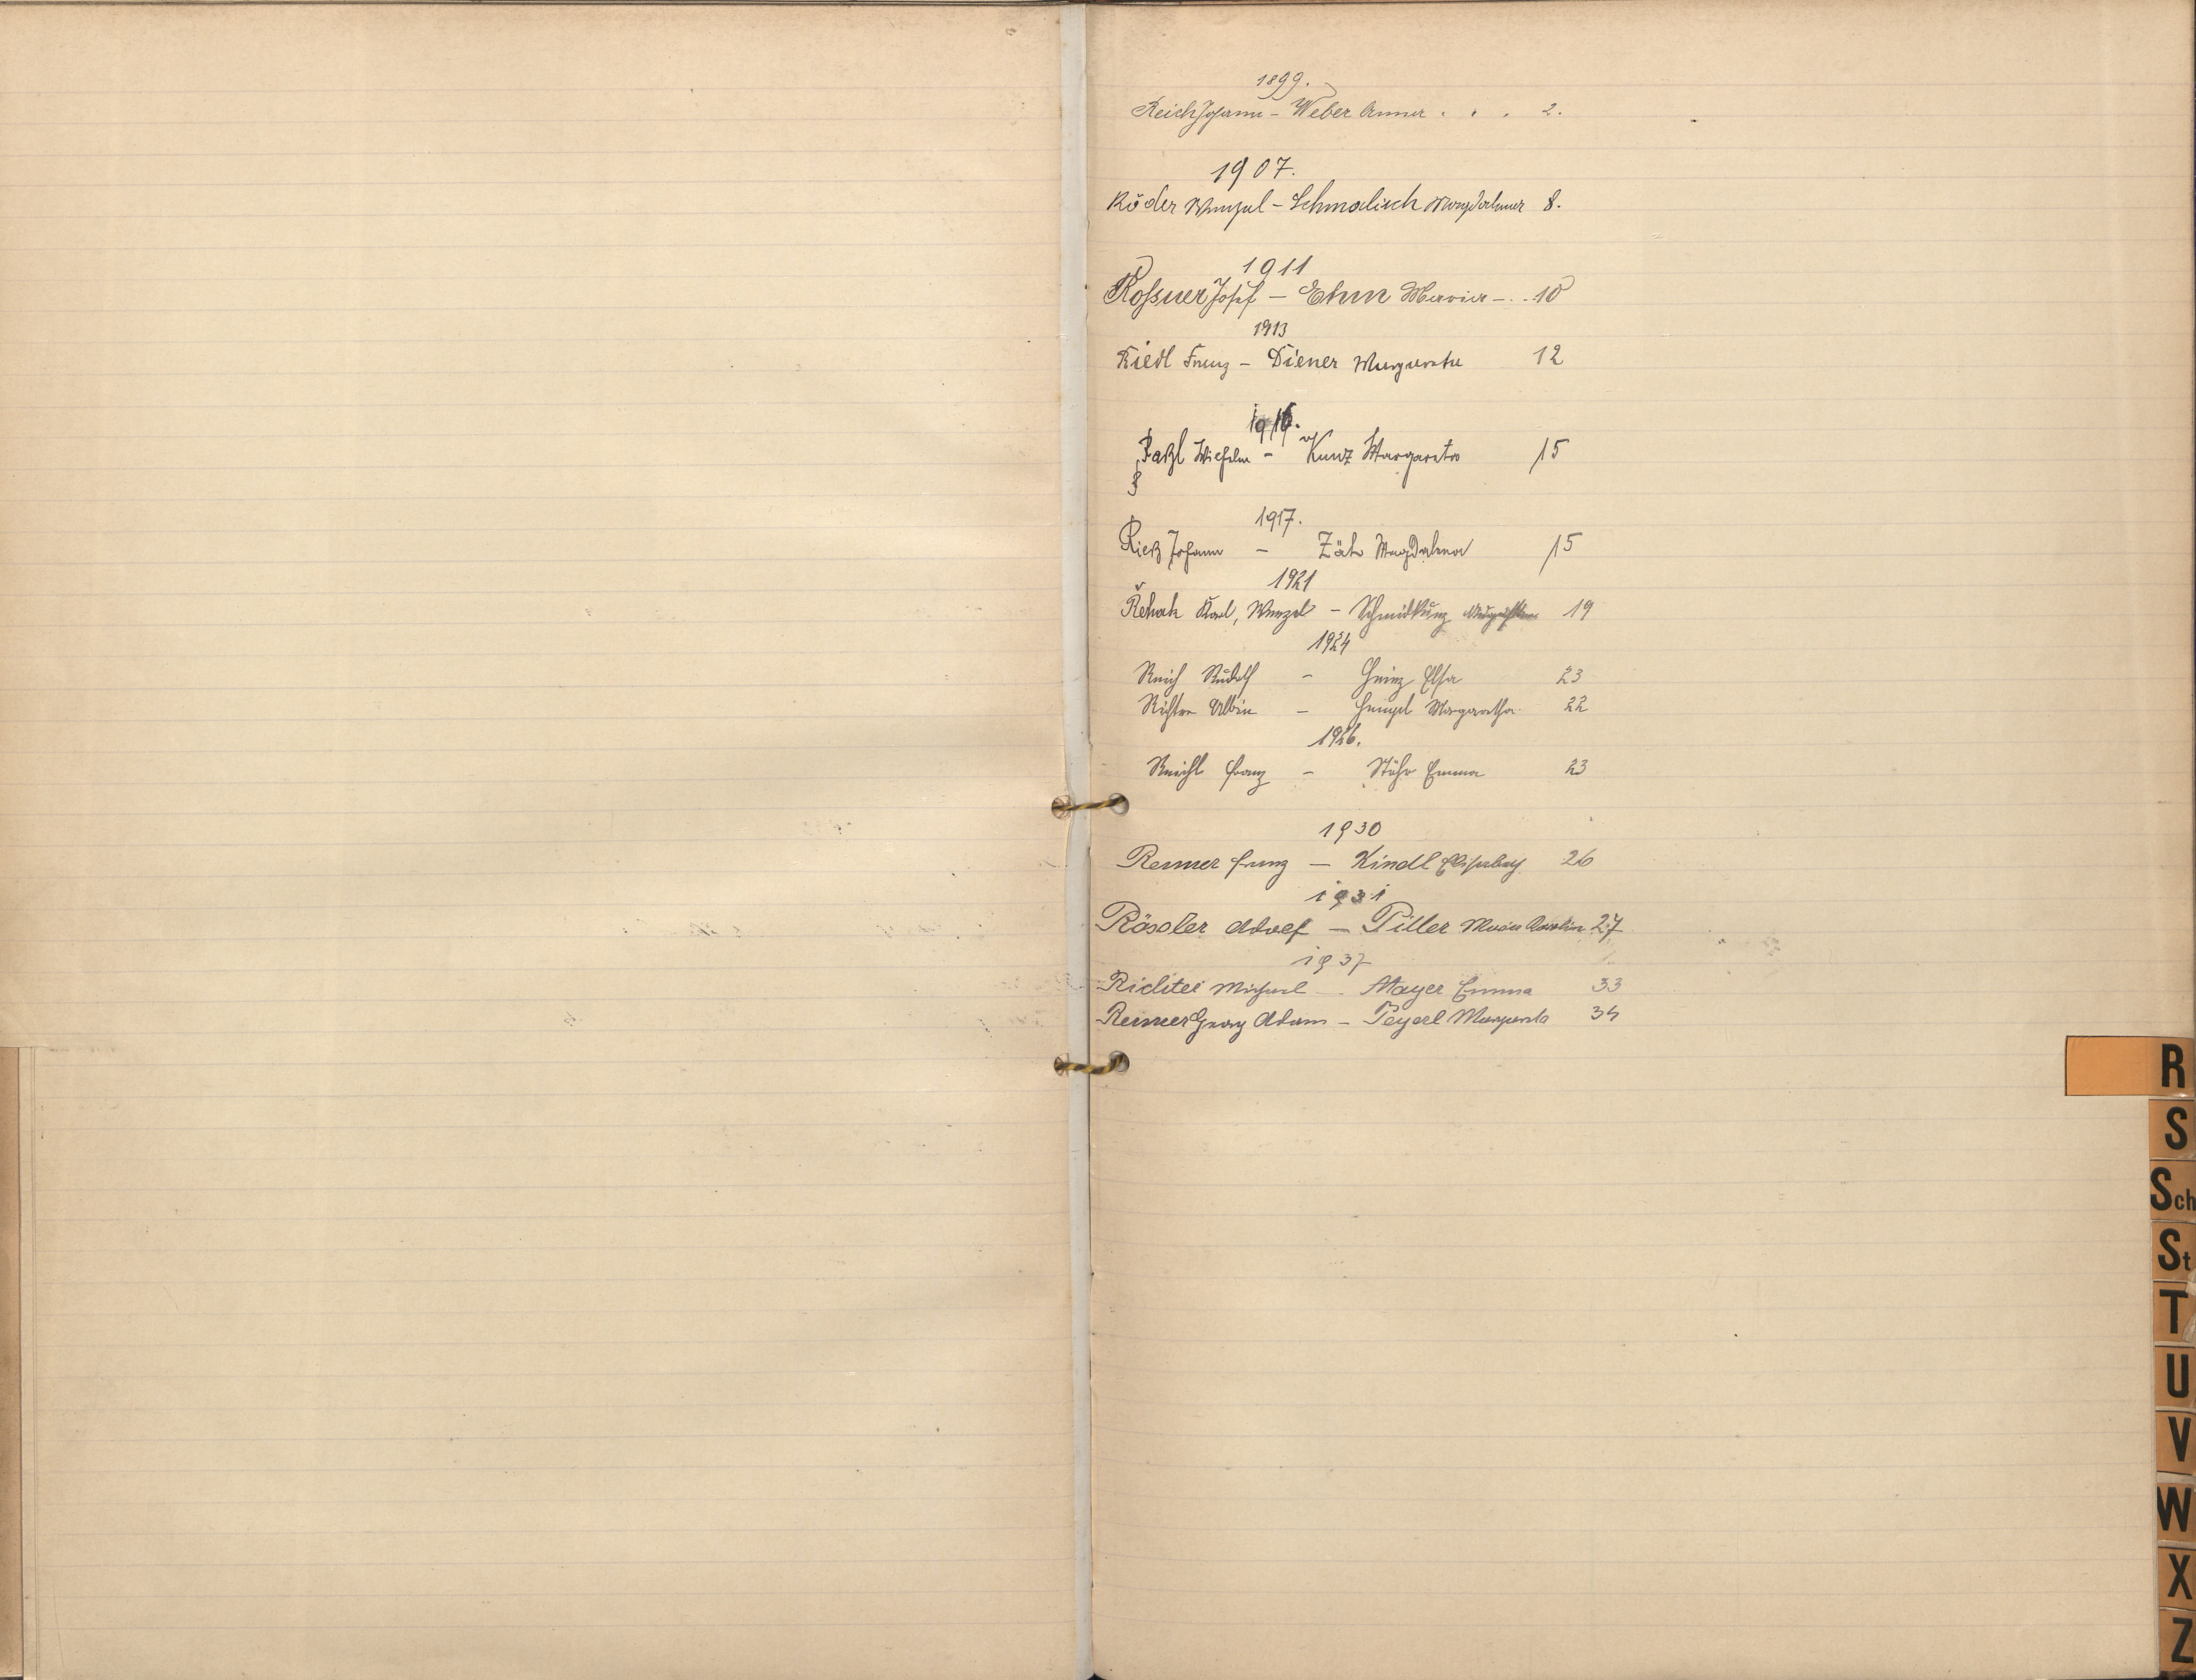 1899.
Reich Johann - Weber Anna . . . 2.
1907.
Röder Wenzel - Schmalisch Magdalena 8.
1911
Roßner Josef - Ehm Maria - . . 10
1913
Riedl Franz - Diener Margareta 12
1916.
Raßl Wilhelm - Kunz Margareta 15
1917.
Rieß Johann - Zäh Magdalena 15
1921
Řehak Karl, Wenzel - Schmidkunz 19
1924
Reich Rudolf - Heinz Elsa 23
Richter Albin - Hengel Margaretha 22
1926.
Reichl Franz - Stöhr Emma 23
1930
Renner Franz - Kindl Elisabeth 26
1931
Rössler Adolf - Piller Maria Karolina 27
1937
Richter Michael - Mayer Emma 33
Renner Georg Adam - Peyerl Margareta 34
R
S
Sch
St
T
U
V
W
X
Z